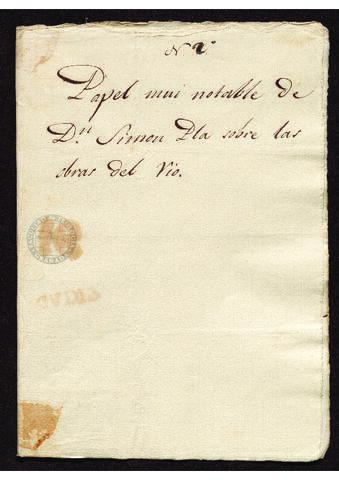 N 2º
Papel mui notable de
D.n Simon Pla sobre las
obras del rio.